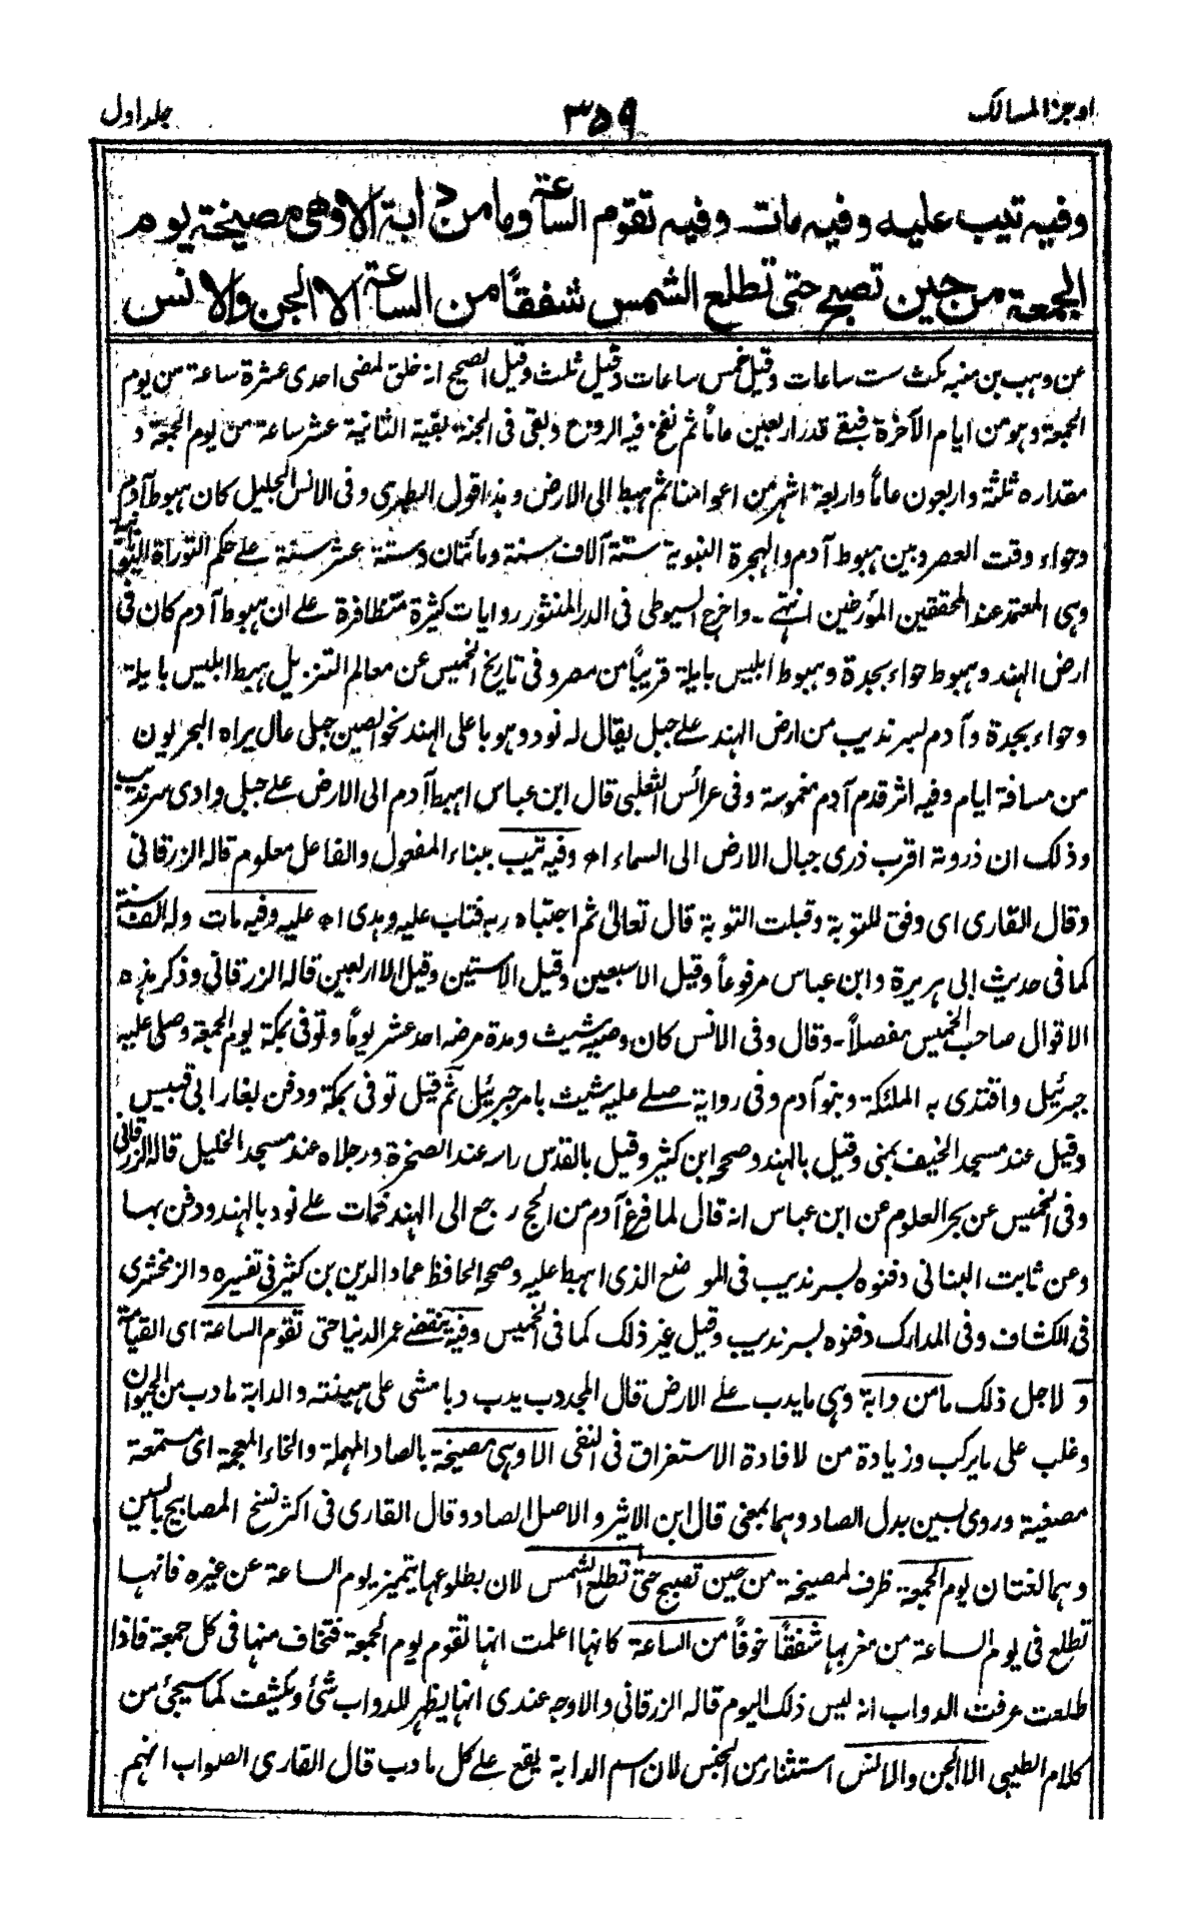 اوجز المسالك
٣٥٩
جلد اول
وفيه تيب عليه وفيه مات وفيه تقوم الساعة وما من دابة الا وهي مصيخة يوم
الجمعة من حين تصبح حتى تطلع الشمس شفقًا من الساعة الا الجن والانس
عن وهب بن منبه مكث ست ساعات وقيل خمس ساعات وقيل ثلث وقيل الصحيح انه خلق لمضى احدى عشرة ساعة من يوم
الجمعة وهو من ايام الآخرة فبقي قدر اربعين عامًا ثم نفخ فيه الروح وبقى فى الجنة بقية الثانية عشر ساعة من يوم الجمعة و
مقداره ثلثة واربعون عامًا واربعة اشهر من اعوامنا ثم هبط الى الارض وهذا قول الطبرى وفى الانس الجليل كان هبوط آدم
وحواء وقت العصر وبين هبوط آدم والهجرة النبوية ستة آلاف سنة ومائتان وستة عشر سنة على حكم التوراة اليونانية
وهى المعتمد عند المحققين المؤرخين انتهى ـ واخرج السيوطى فى الدر المنثور روايات كثيرة متظافرة على ان هبوط آدم كان فى
ارض الهند وهبوط حواء بجدة وهبوط ابليس بايلة قريبًا من مصر وفى تاريخ الخميس عن معالم التنزيل هبط ابليس بايلة
وحواء بجدة وآدم بسرنديب من ارض الهند على جبل يقال له نود وهو باعلى الهند نحو الصين جبل عال يراه البحريون
من مسافة ايام وفيه اثر قدم آدم مغموسة وفى عرائس الثعلبى قال ابن عباس اهبط آدم الى الارض على جبل وادى سرنديب
وذلك ان ذروته اقرب ذرى جبال الارض الى السماء اه وفيه تيب ببناء المفعول والفاعل معلوم قاله الزرقانى
وقال القارى اى وفق للتوبة وقبلت التوبة قال تعالى ثم اجتباه ربه فتاب عليه وهدى اه عليه وفيه مات وله الف سنة
كما فى حديث ابى هريرة وابن عباس مرفوعًا وقيل الا سبعين وقيل الا ستين وقيل الا اربعين قاله الزرقانى وذكر هذه
الاقوال صاحب الخميس مفصلاً ـ وقال وفى الانس كان وصيه شيث ومدة مرضه احد عشر يومًا وتوفى بمكة يوم الجمعة وصلى عليه
جبرئيل واقتدى به الملئكة وبنو آدم وفى رواية صلى عليه شيث بامر جبرئيل ثم قيل توفى بمكة ودفن بغار ابى قبيس
وقيل عند مسجد الخيف بمنى وقيل بالهند وصححه ابن كثير وقيل بالقدس راسه عند الصخرة ورجلاه عند مسجد الخليل قاله الزرقانى
وفى الخميس عن بحر العلوم عن ابن عباس انه قال لما فرغ آدم من الحج رجع الى الهند فمات على نود بالهند ودفن بها
وعن ثابت البنانى دفنوه بسرنديب فى الموضع الذى اهبط عليه وصححه الحافظ عماد الدين بن كثير فى تفسيره والزمخشرى
فى الكشاف وفى المدارك دفنوه بسرنديب وقيل غير ذلك كما فى الخميس وفيه ينقضى عمر الدنيا حتى تقوم الساعة اى القيامة
و لاجل ذلك ما من دابة وهى ما يدب على الارض قال المجد دب يدب دبا مشى على هيئته والدابة ما دب من الحيوان
وغلب على ما يركب وزيادة من لافادة الاستغراق فى النفى الا وهى مصيخة بالصاد المهملة والخاء المعجمة اى مستمعة
مصغية وروى بسين بدل الصاد وهما بمعنى قال ابن الاثير والاصل الصاد وقال القارى فى اكثر نسخ المصابيح بالسين
وهما لغتان يوم الجمعة ظرف لمصيخة من حين تصبح حتى تطلع الشمس لان بطلوعها يتميز يوم الساعة عن غيره فانها
تطلع فى يوم الساعة من مغربها شفقًا خوفًا من الساعة كانها اعلمت انها تقوم يوم الجمعة فتخاف منها فى كل جمعة فاذا
طلعت عرفت الدواب انه ليس ذلك اليوم قاله الزرقانى والاوجه عندى انها يظهر للدواب شئ ويكشف كما سيجئ من
كلام الطيبى الا الجن والانس استثناء من الجنس لان اسم الدابة يقع على كل ما دب قال القارى الصواب انهم